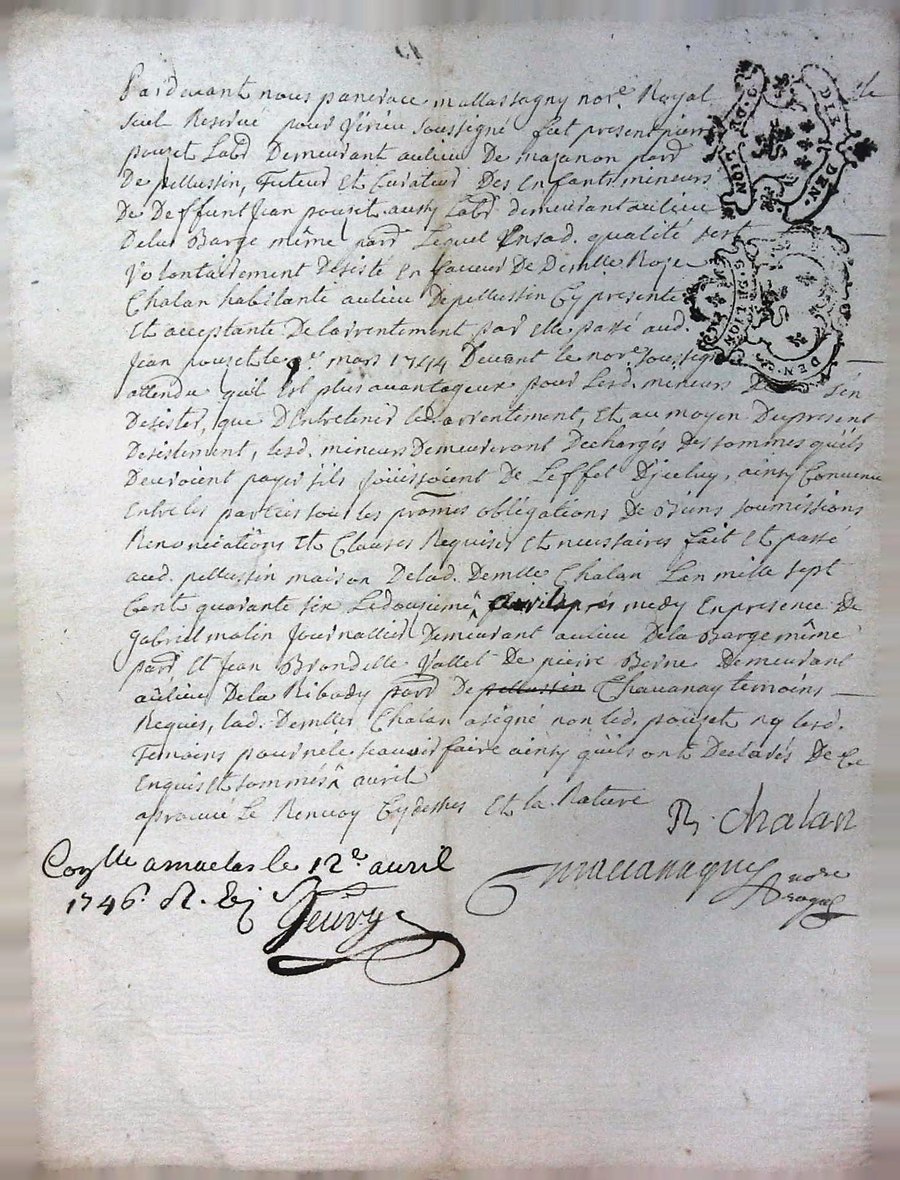 Pardevant nous panerace mallassagny nore. Royal
seul Reserve pour Virieu soussigné fut present pierre
pouzet Labr Demeurant aulieu De mazanon parr
De pellussin, Tuteur Et Curateur Des Enfants mineurs
De Deffunt Jean pouzet aussy Labr demeurant aulieu
Delas Barge même parr Lequel Ensad. qualité sest
Volontairement Desisté En faveur De Demlle Roze
Chalan habitante aulieu De pellussin Cy presente
Et acceptante De larrentement par Elle passé aud.
Jean pouzet le mars 1744 Devant le nore soussigné
attendu quil Est plus avantageux pour Lesd. mineurs De sen
Desister, que D'Entretenir led. arrentement, Et au moyen Dupresent
Desistement, lesd. mineurs Demeureront Dechargés Des sommes quils
Devroient payer sils jouissoient De Leffet Dyceluy, ainsy Convenu
Entre les parties sou les promes obligations De biens soumissions
Renonciations Et Clauses Requises Et necessaires fait Et passé
aud. pellussin maison Delad. Demlle Chalan Lan mille sept
Cent quarante six Ledousieme ^ après medy En presence De
Gabriel matin Journallier Demeurant aulieu Dela Barge même
parr Et Jean Brondelle Vallet De pierre Berne Demeurant
aulieu Dela Ribaudy parr De pellussin Chavanay temoins
Requis, lad. Demlle Chalan a signé non led. pouzet ny lesd.
Temoins pour ne le scavoir faire ainsy quils ont Declarés De Ce
Enquis Et sommés ^ avril
aprouvé Le Renvoy Cydessus Et la Rature
R. Chalan
mallassagny nore
royal
Coñlle a maclas le 12e avril
1746.